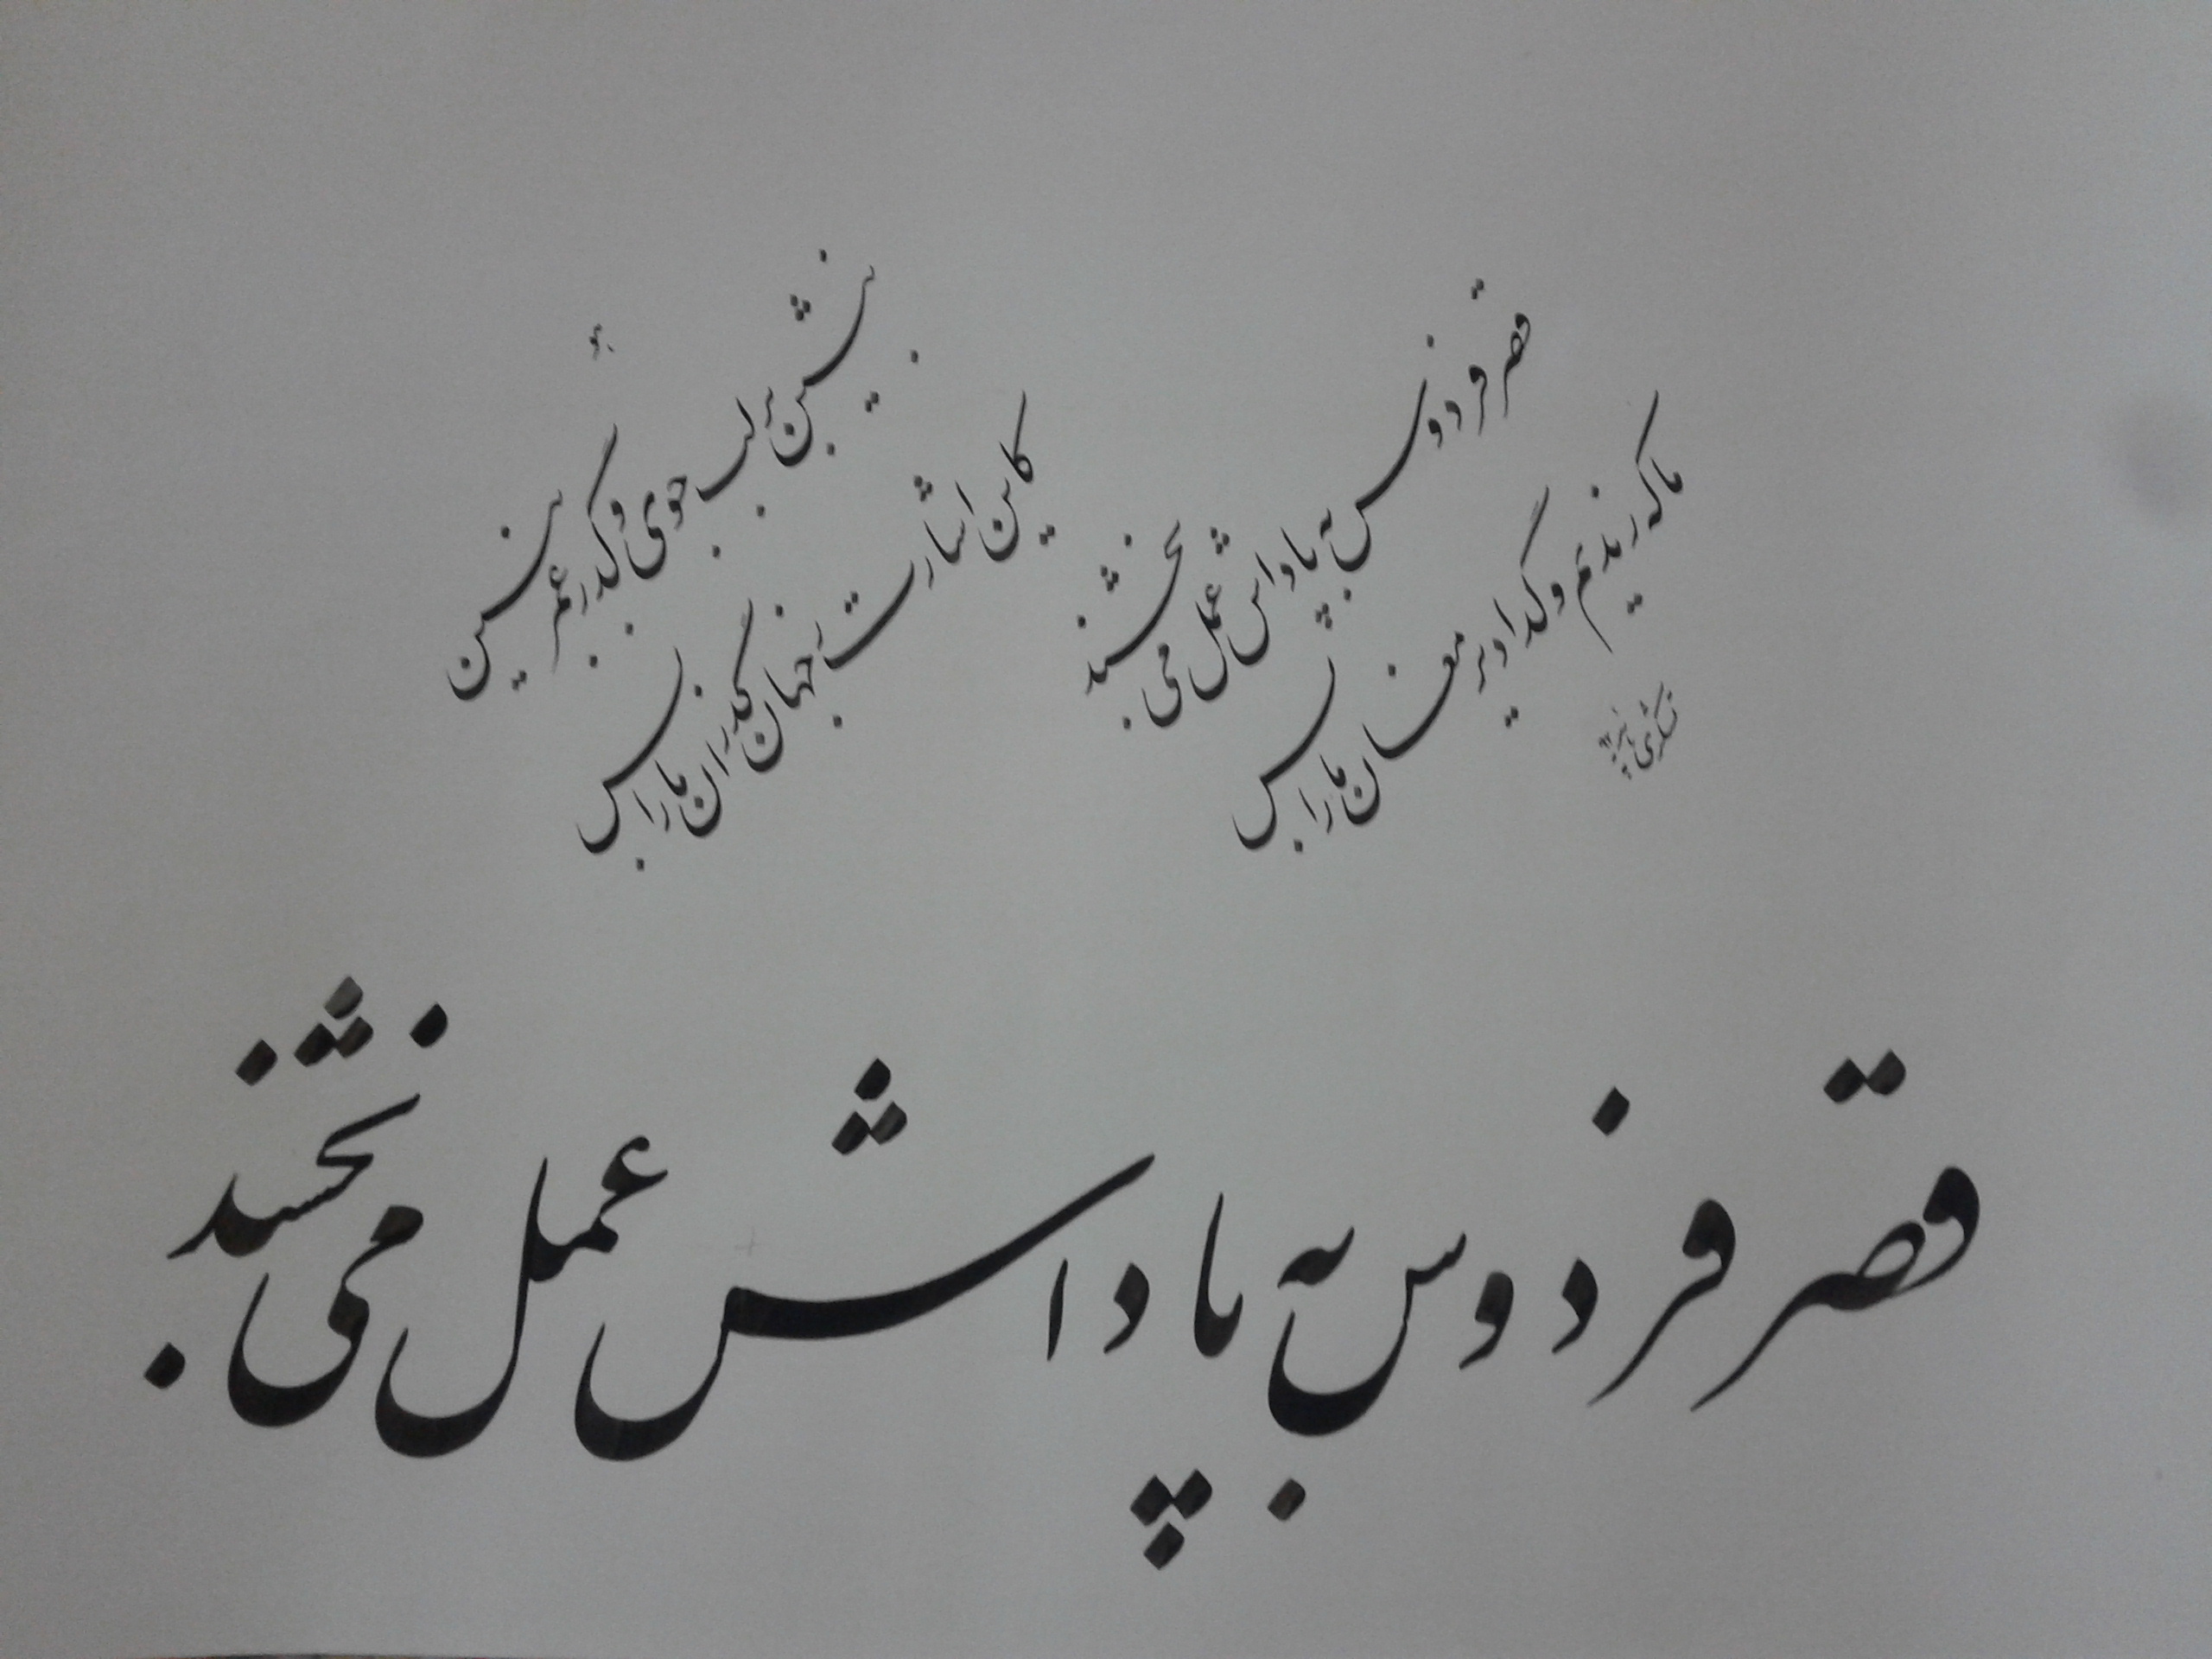 قصر فردوس به پاداش عمل می بخشند
ما که رندیم و گدا دیر مغان ما را بس
بنشین بر لب جوی و گذر عمر ببین
کاین اشارت ز جهان گذران ما را بس
قصر فردوس به پاداش عمل می بخشند